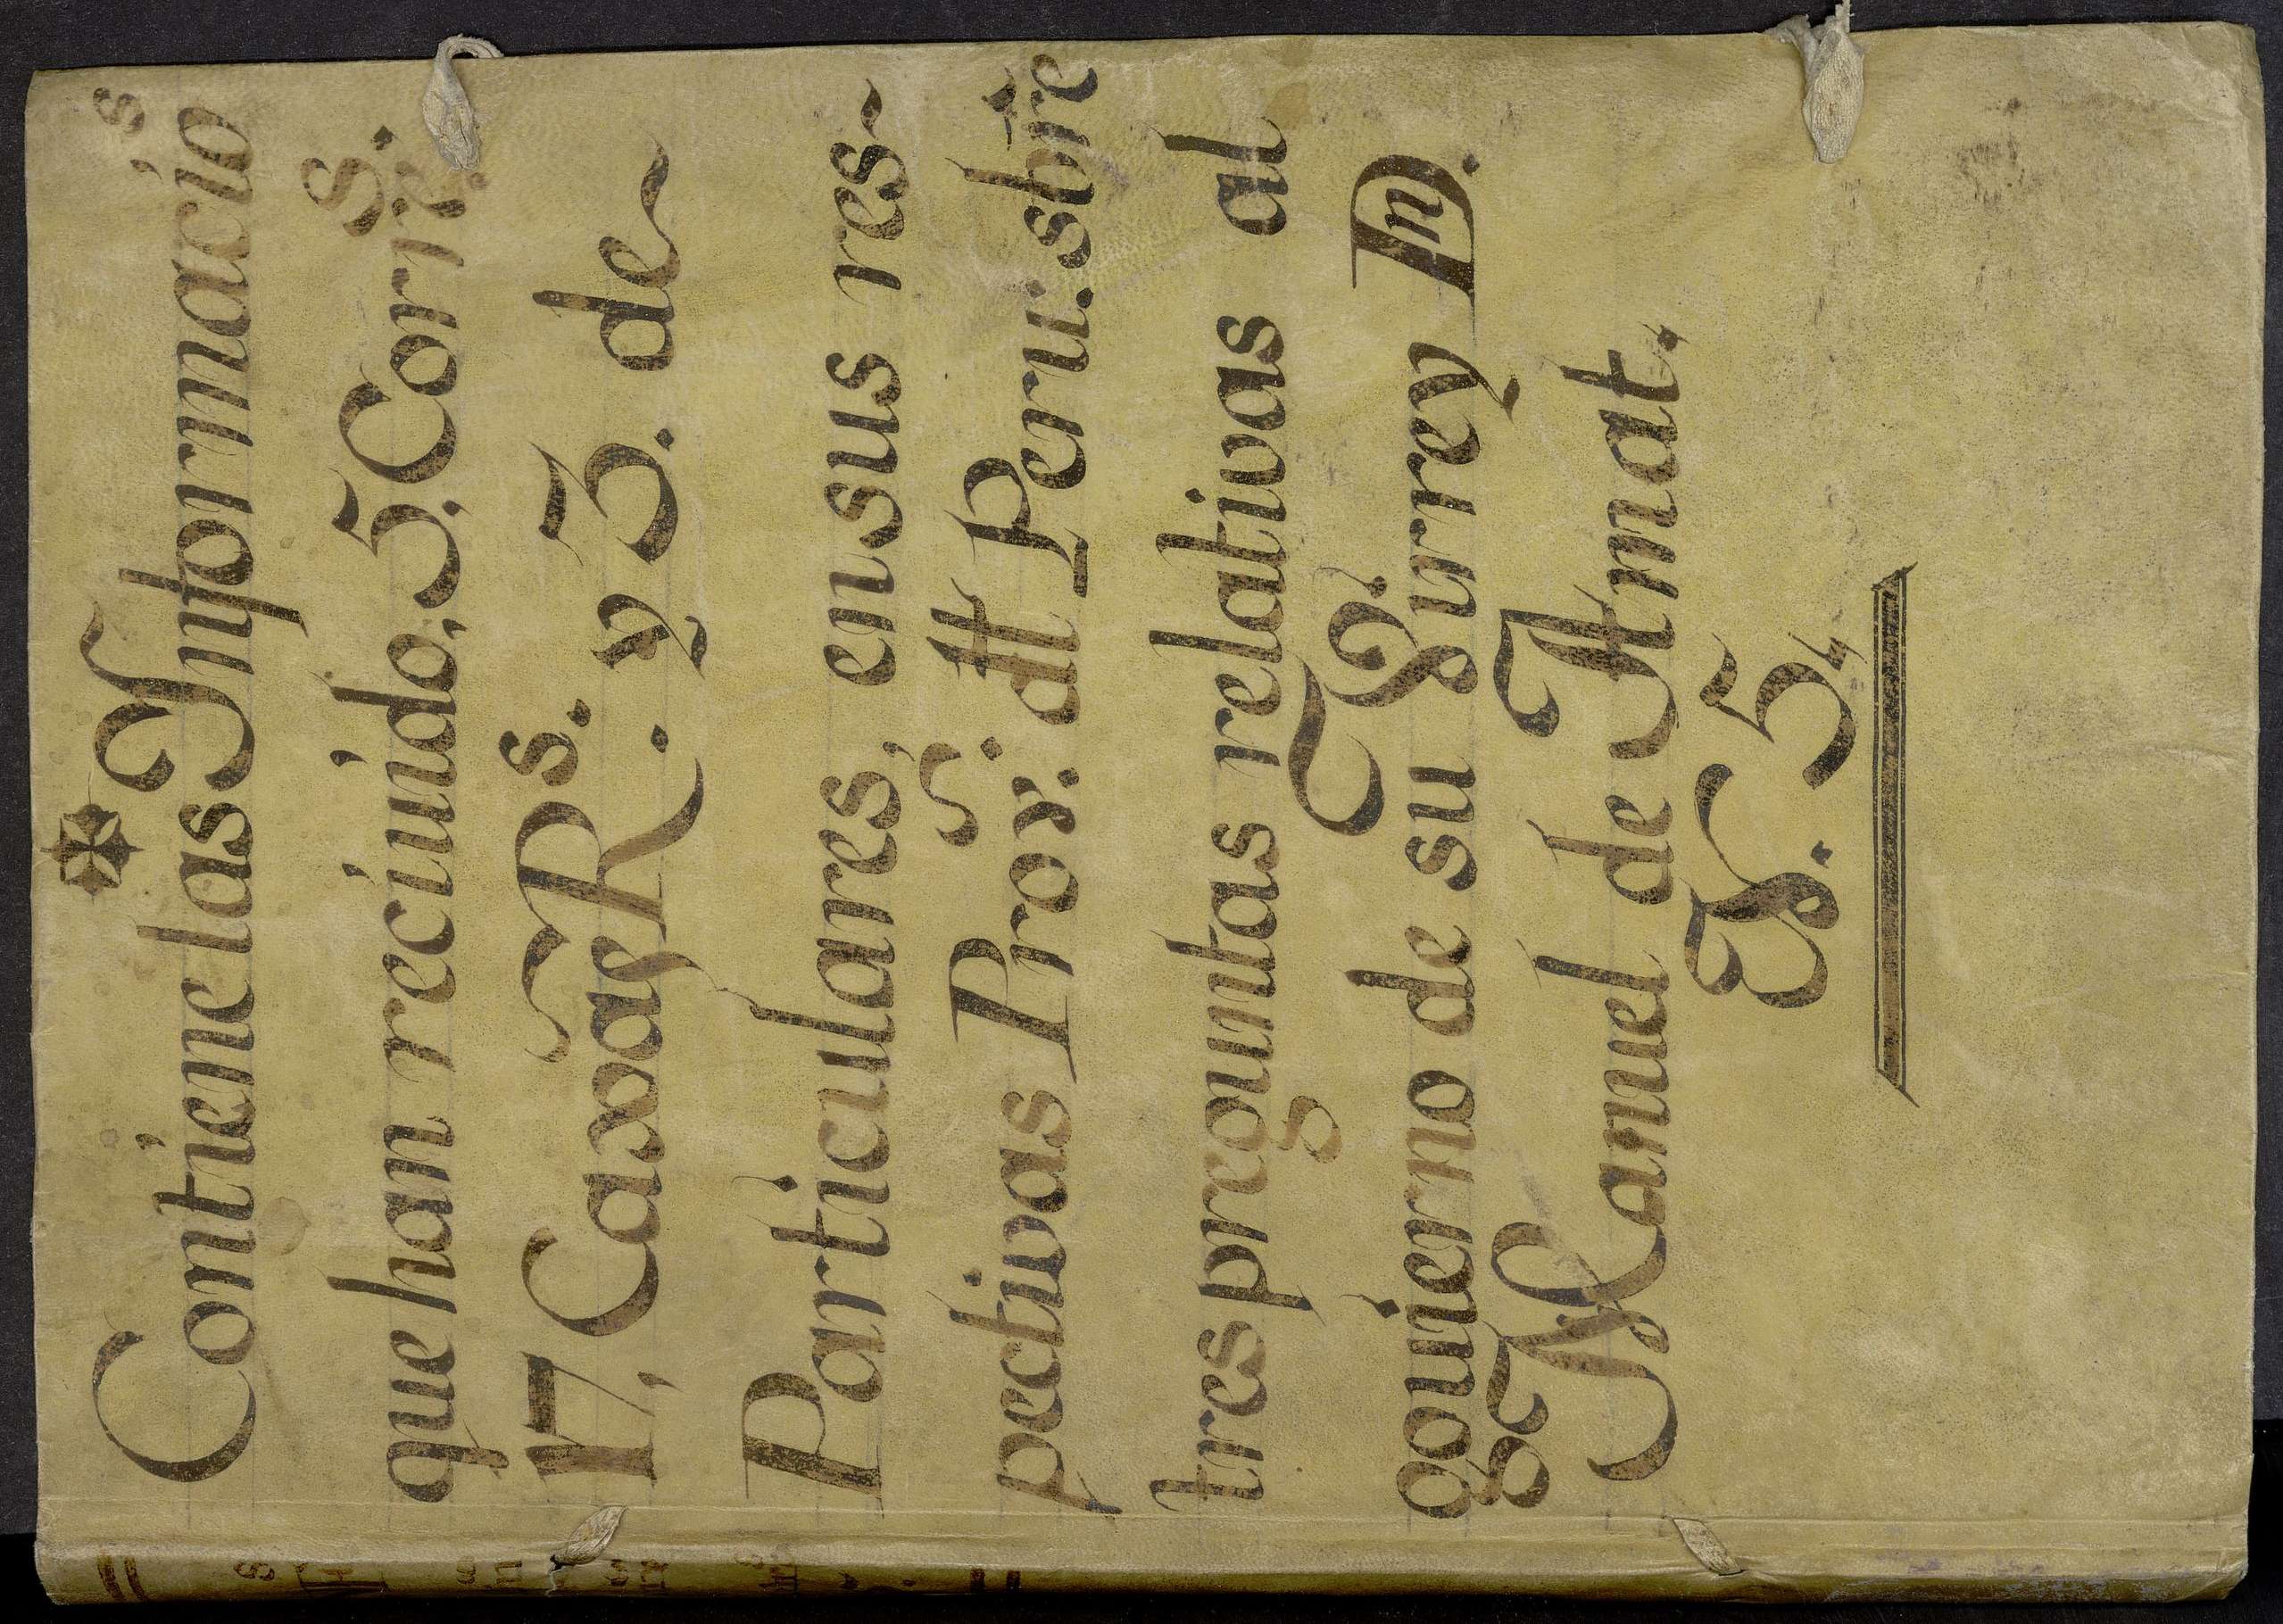 ✠
Contiene las Ynformacio.s
que han reciuido, 5, Corr.s
17, Caxas R.s. y 3. de
Particulares, en sus res-
pectiuas Prox.s dłł Peru. sbr̃e
tres preguntas relatiuas al
gouierno de su Virrey Dn.
Manuel de Amat.
E. 5